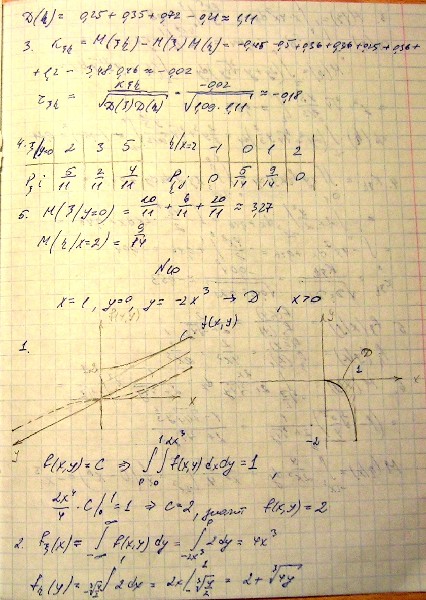 D(η) = 0,25 + 0,35 + 0,72 - 0,21 ≈ 1,11
3. Kξη = M(ξη) - M(ξ)M(η) = -0,45 - 0,5 + 0,36 + 0,36 + 0,25 + 0,36 +
+ 1,2 - 3,48·0,46 ≈ -0,02
rξη = Kξη / √D(ξ)D(η) = -0,02 / √1,09·1,11 ≈ -0,18
4. ξ/y=0 2 3 5 η/x=2 -1 0 1 2
Pξi 5/11 2/11 4/11 Pηj 0 5/14 9/14 0
5. M(ξ/y=0) = 10/11 + 6/11 + 20/11 ≈ 3,27
M(η/x=2) = 9/14
N10
x = 1, y=0, y = -2x³ → D, x>0
f(x,y)
1.
C
f(x,y)
x
y
y
D
1
x
-2
f(x,y) = C ⇒ ∫∫ f(x,y) dxdy = 1
2x⁴/4 · C |₀¹ = 1 ⇒ C=2, значит f(x,y) = 2
2. fξ(x) = ∫ f(x,y) dy = ∫ 2dy = 4x³
fη(y) = ∫ 2dx = 2x | = 2 + ∛4y